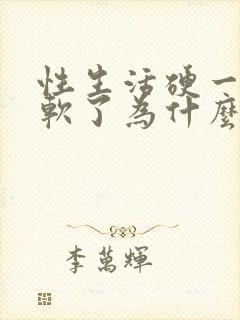 性生活硬一
軟了為什麼
李萬輝